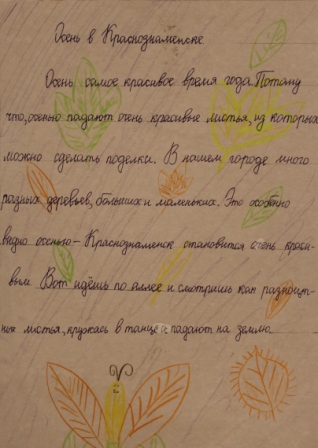 Осень в Краснознаменске.
Осень самое красивое время года. Потому
что, осенью падают очень красивые листья, из которых
можно сделать поделки. В нашем городе много
разных деревьев, больших и маленьких. Это особенно
видно осенью - Краснознаменск становится очень краси-
вым. Вот идёшь по аллее и смотришь как разноцвет-
ные листья, кружась в танце падают на землю.